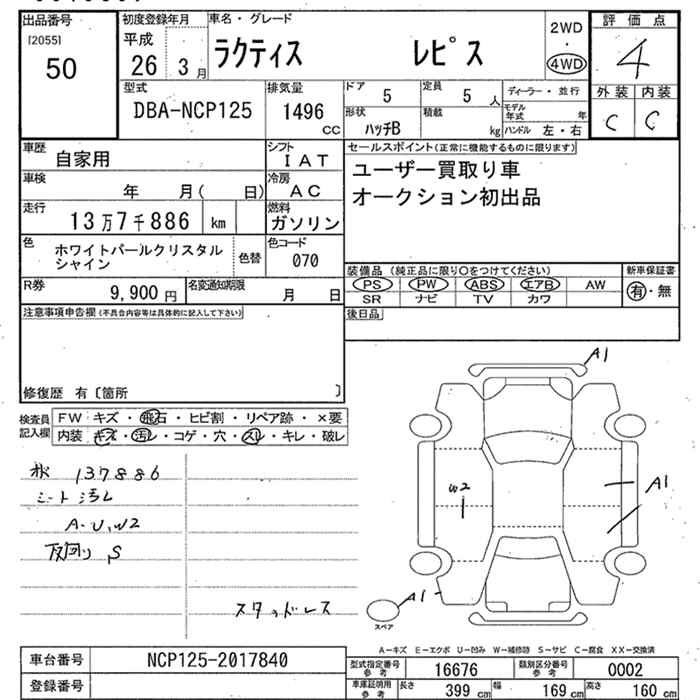 出品番号
[2055]
50
初度登録年月
平成
26 3月
車名・グレード
ラクティス レピス
2WD
・
4WD
評価点
4
外装 内装
C C
型式
DBA-NCP125
排気量
1496
CC
ドア
5
定員
5人
ディーラー・並行
形状
ハッチB
積載
kg
モデル年式 年
ハンドル 左・右
車歴
自家用
シフト
IAT
車検
年 月( 日)
冷房
AC
走行
13万7千886 km
燃料
ガソリン
色
ホワイトパールクリスタル
シャイン
色替
色コード
070
R券
9,900円
名変通知期限
月 日
セールスポイント(正常に機能するものに限ります)
ユーザー買取り車
オークション初出品
装備品 (純正品に限り○をつけてください)
PS PW ABS エアB AW
SR ナビ TV カワ
新車保証書
有・無
後日品
注意事項申告欄(不具合内容等は具体的に記入して下さい)
修復歴 有〔箇所 〕
検査員
記入欄
FW キズ・飛石・ヒビ割・リペア跡・×要
内装 キズ・汚レ・コゲ・穴・スレ・キレ・破レ
137886
シート汚レ
A・U,W2
S
スタッドレス
A1
W2
A1
A1
スペア
A-キズ E-エクボ U-凹み W-補修跡 S-サビ C-腐食 XX-交換済
車台番号
NCP125-2017840
登録番号
型式指定番号
参考
16676
類別区分番号
参考
0002
車庫証明用
参考
長さ
399cm
幅
169cm
高さ
160cm